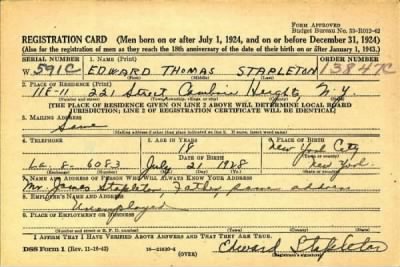 FORM APPROVED
Budget Bureau No. 33-R012-42
REGISTRATION CARD (Men born on or after July 1, 1924, and on or before December 31, 1924)
(Also for the registration of men as they reach the 18th anniversary of the date of their birth on or after January 1, 1943.)
SERIAL NUMBER 1. NAME (Print) ORDER NUMBER
W 591C EDWARD THOMAS STAPLETON 13847C
(First) (Middle) (Last)
2. PLACE OF RESIDENCE (Print)
118-11 221 Street Cambria Heights N.Y.
[THE PLACE OF RESIDENCE GIVEN ON LINE 2 ABOVE WILL DETERMINE LOCAL BOARD
JURISDICTION; LINE 2 OF REGISTRATION CERTIFICATE WILL BE IDENTICAL]
3. MAILING ADDRESS
Same
[Mailing address if other than place indicated on line 2. If same, insert word same]
4. TELEPHONE 5. AGE IN YEARS 6. PLACE OF BIRTH
18 New York City
DATE OF BIRTH
La. 8-6083 July 21 1928 New York
7. NAME AND ADDRESS OF PERSON WHO WILL ALWAYS KNOW YOUR ADDRESS
Mr. James Stapleton Father same address
8. EMPLOYER'S NAME AND ADDRESS
Unemployed
9. PLACE OF EMPLOYMENT OR BUSINESS
I AFFIRM THAT I HAVE VERIFIED ABOVE ANSWERS AND THAT THEY ARE TRUE.
DSS Form 1 (Rev. 11-16-42) 16-21630-4 Edward Stapleton
(OVER)